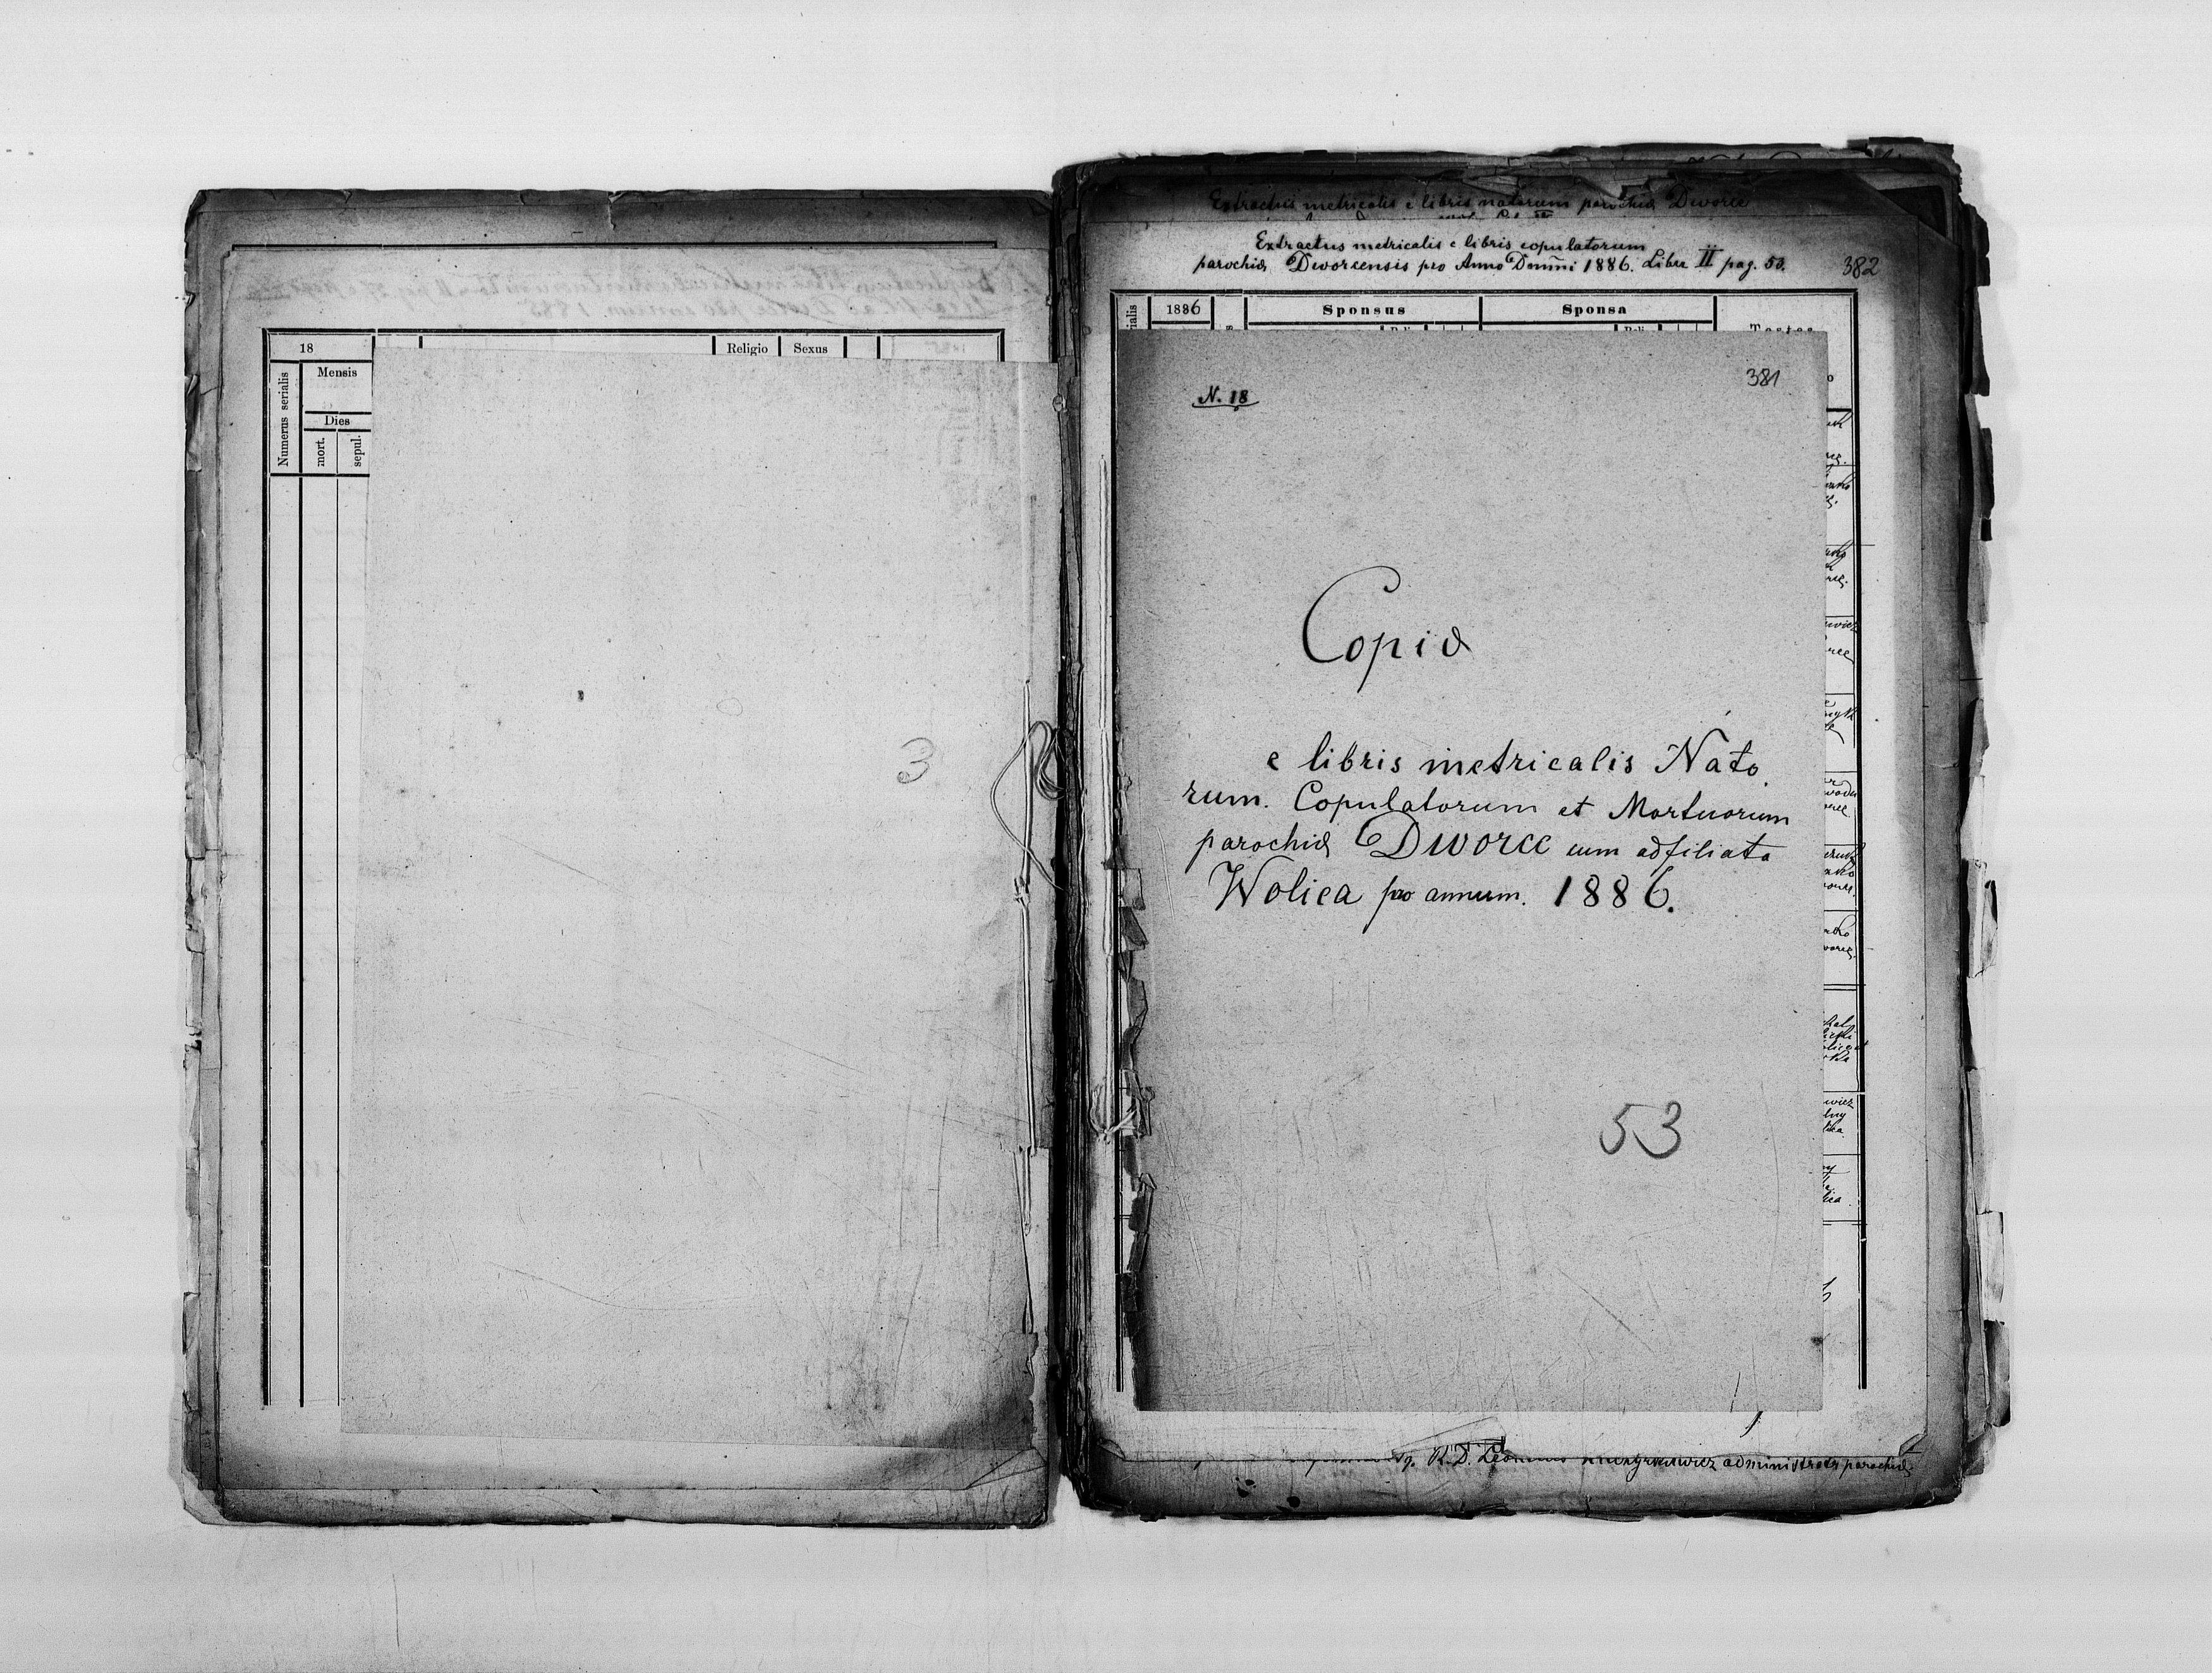 18
Religio Sexus
Numerus serialis
Mensis
Dies
mort.
sepul.
3
Extractus metricalis e libris natorum parochiæ Dworce
Extractus metricalis e libris copulatorum
parochiæ Dworcensis pro Anno Domini 1886. Liber II pag. 53.
382
1886
Sponsus
Sponsa
Testes
381
N. 18
Copia
e libris metricalis Nato
rum. Copulatorum et Mortuorum
parochiæ Dworce cum adfiliata
Wolica pro annum. 1886.
53
R. D. administrator parochiæ.